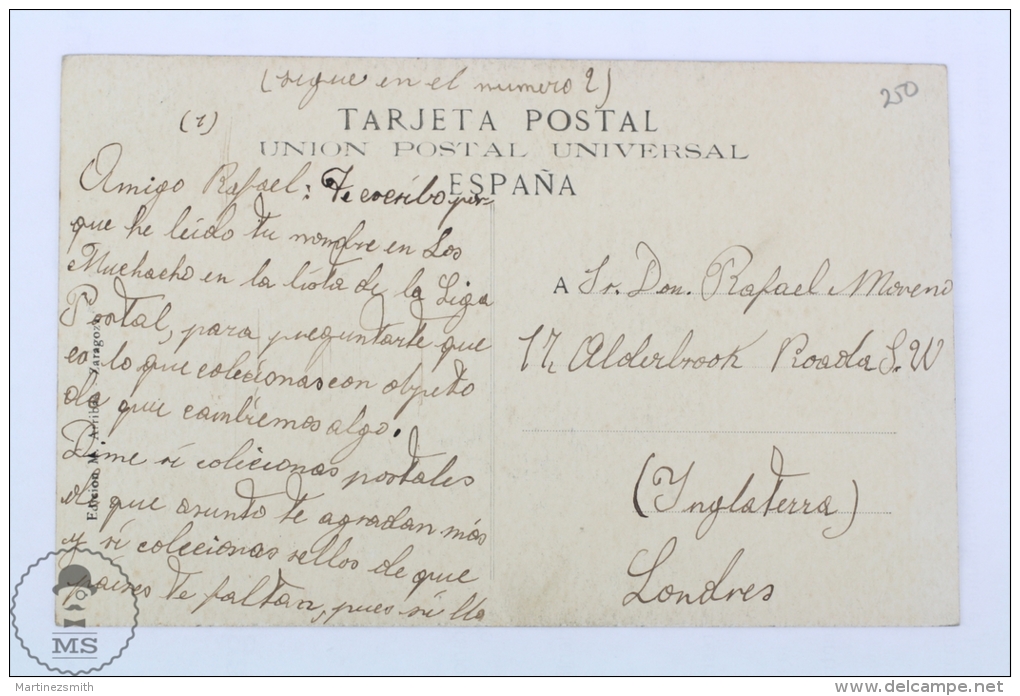 (sigue en el numero 2)
250
(1)
TARJETA POSTAL
UNION POSTAL UNIVERSAL
ESPAÑA
Amigo Rafael: Te escribo por-
que he leido tu nombre en Los
Muchacho en la lista de la Liga
Postal, para preguntarte que
es lo que colecionas con objeto
de que cambiemos algo.
Dime si colecionas postales
de que asunto te agradan más
y si coleccionas sellos de que
países te faltan, pues si llo
A Sr. Don. Rafael Moreno
17, Alderbrook Roada S.W
(Inglaterra)
Londres
Edición M. Arribas Zaragoza
MS
Martinezsmith
www.delcampe.net